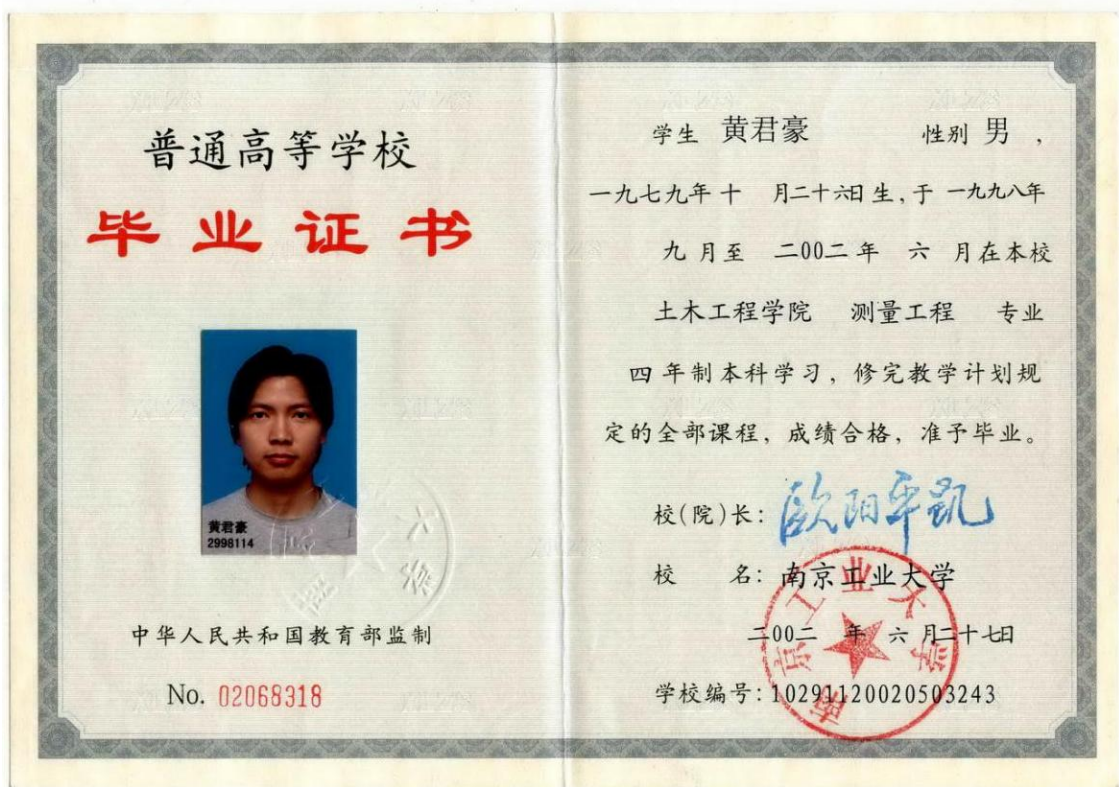 普通高等学校
毕业证书
黄君豪
2998114
中华人民共和国教育部监制
No. 02068318
学生 黄君豪 性别 男 ,
一九七九年 十 月二十六日 生, 于 一九九八年
九 月至 二00二 年 六 月在本校
土木工程学院 测量工程 专业
四 年制本科学习, 修完教学计划规
定的全部课程, 成绩合格, 准予毕业。
校(院)长: 欧阳平凯
校 名: 南京工业大学
南京工业大学
二00二 年 六 月二十七日
学校编号: 10291120020503243